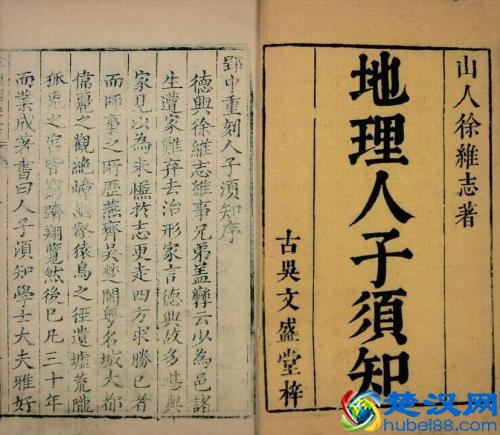 山人徐維志著
地理人子須知
古吳文盛堂梓
郢中重刻人子須知序
德興徐維志維事兄弟蓋孿云少為邑諸
生遭家難弃去治形家言德興故多堪輿
家見以為未愜於志更走四方求勝已者
而師事之所歷燕齊吳楚閩粵名城大都
偉麗之觀絶嶂猿鳥之徑遺墟荒隴
之宮皆窮躋翔覽然後已凡三十年
而業成著書曰人子須知學士大夫雅好
楚汉网
hubei88.com